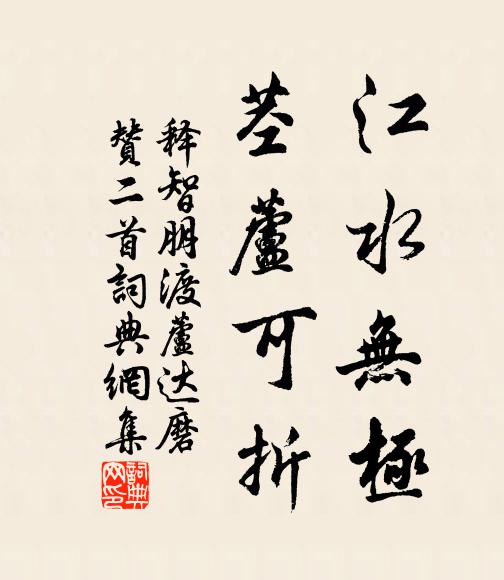 江水無極
茎蘆可折
释智朋渡蘆达磨
贊二首詞典網集
詞典网印